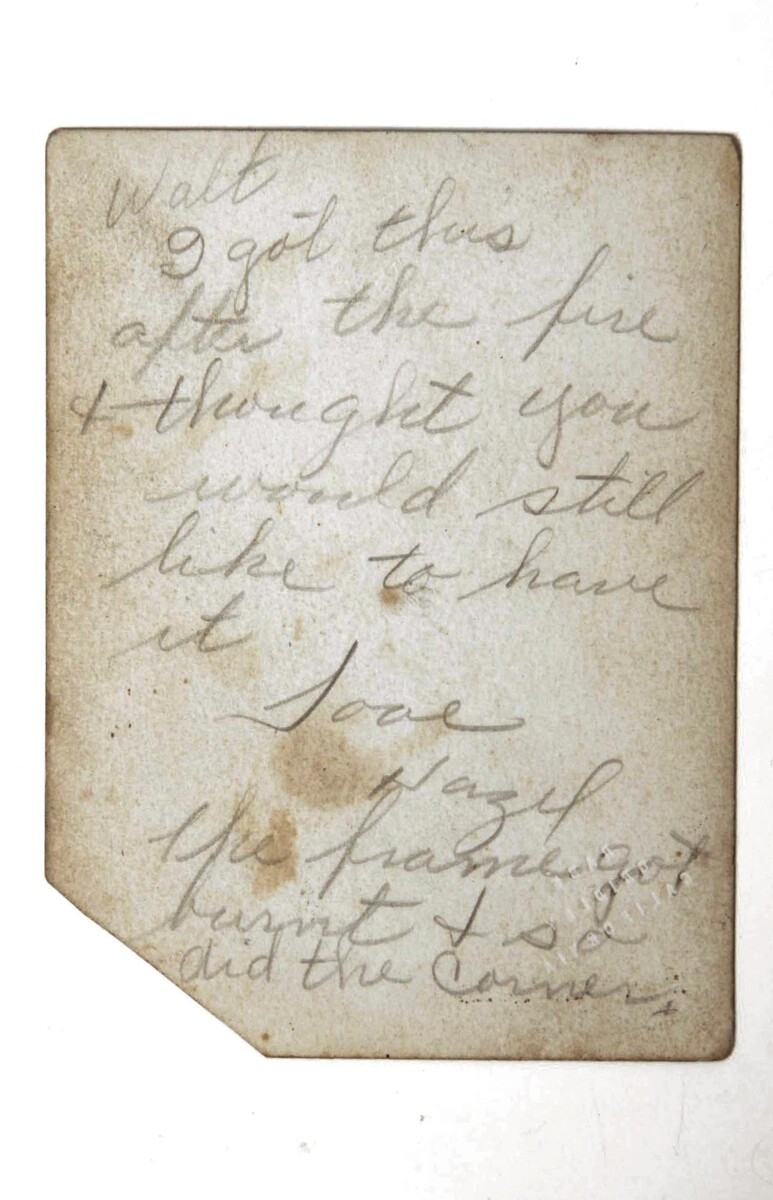 Walt
I got this
after the fire
& thought you
would still
like to have
it
Love
Hazel
the frame got
burnt & so
did the Corner.